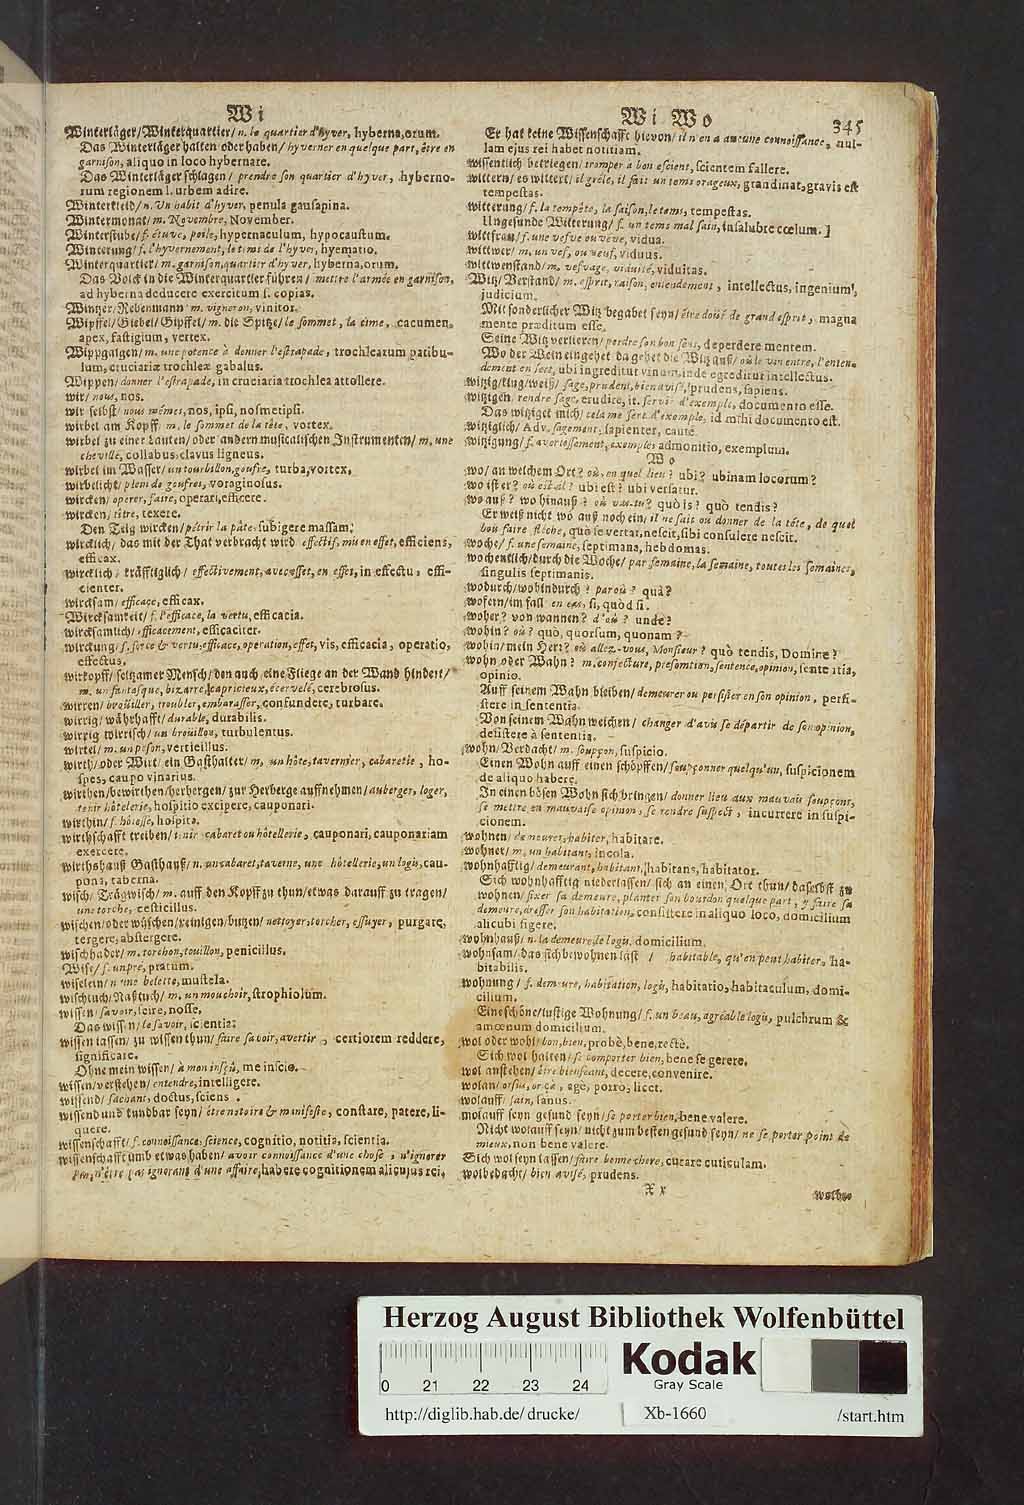 Wi
Winterläger/Winterquartier/ n. le quartier d'hyver, hyberna, orum.
Das Winterläger halten oder haben/ hyverner en quelque part, être en
garnison, aliquo in loco hybernare.
Das Winterläger schlagen/ prendre son quartier d'hyver, hyberno-
rum regionem l. urbem adire.
Winterkleid/ n. Un habit d'hyver, penula gausapina.
Wintermonat/ m. Novembre, November.
Winterstube/ f. étuve, poile, hypernaculum, hypocaustum.
Winterung/ f. l'hyvernement, le tems de l'hyver, hyematio.
Winterquartier/ m. garnison, quartier d'hyver, hyberna, orum.
Das Volck in die Winterquartier führen/ mettre l'armée en garnison,
ad hyberna deducere exercitum s. copias.
Wintzer/Rebenmann m. vigneron, vinitor.
Wipffel/Giebel/Gipffel/ m. die Spitze/ le sommet, la cime, cacumen,
apex, fastigium, vertex.
Wippgalgen/ m. une potence à donner l'estrapade, trochlearum patibu-
lum, cruciariæ trochlex gabalus.
Wippen/ donner l'estrapade, in cruciaria trochlea attollere.
wir/ nous, nos.
wir selbst/ nous mêmes, nos, ipsi, nosmetipsi.
wirbel am Kopff m. le sommet de la tête, vortex.
wirbel zu einer Lauten/ oder andern musicalischen Instrumenten/ m. une
cheville, collabus, clavus ligneus.
wirbel im Wasser/ un tourbillon, goufre, turba, vortex.
wirbelicht/ plein de goufres, voraginosus.
wircken/ operer, faire, operari, efficere.
wircken/ titre, texere.
Den Teig wircken/ pétrir la pâte, subigere massam.
wircklich/ das mit der That verbracht wird effectif, mis en effet, efficiens,
efficax.
wircklich/ kräfftiglich/ effectivement, avec effet, en effet, in effectu, effi-
cienter.
wircksam/ efficace, efficax.
Wircksamkeit/ f. l'efficace, la vertu, efficacia.
wircksamlich/ efficacement, efficaciter.
wirckung/ f. force & vertu, efficace, operation, effet, vis, efficacia, operatio,
effectus.
wirkopff/ seltzamer Mensch/ den auch eine Fliege an der Wand hindert/
m. un fantasque, bizarre, capricieux, écervelé, cerebrosus.
wirren/ broüiller, troubler, embarasser, confundere, turbare.
wirrig/ währhafft/ durable, durabilis.
wirrig wirrisch/ un broüillon, turbulentus.
wirtel/ m. un peson, verticillus.
wirth/ oder Wirt/ ein Gasthalter/ m. un hôte, tavernier, cabaretie, ho-
spes, caupo vinarius.
wirthen/bewirthen/herbergen/ zur Herberge auffnehmen/ auberger, loger,
tenir hôtelerie, hospitio excipere, cauponari.
wirthin/ f. hôtesse, hospita.
wirthschafft treiben/ tenir cabaret ou hôtellerie, cauponari, cauponariam
exercere.
wirthshauß Gasthauß/ n. un cabaret, taverne, une hôtellerie, un logis, cau-
pona, taberna.
wisch/ Trägwisch/ m. auff den Kopff zu thun/ etwas darauff zu tragen/
une torche, cesticillus.
wischen/ oder wäschen/reinigen/butzen/ nettoyer, torcher, essuyer, purgare,
tergere, abstergere.
wischhader/ m. torchon, touillon, penicillus.
Wise/ f. un pré, pratum.
wiselein/ n une belette, mustela.
wischtuch/Naßtuch/ m. un mouchoir, strophiolum.
wissen/ savoir, scire, nosse,
Das wissen/ le savoir, scientia.
wissen lassen/ zu wissen thun/ faire savoir, avertir, certiorem reddere,
significare.
Ohne mein wissen/ à mon insçû, me inscio.
wissen/verstehen/ entendre, intelligere.
wissend/ sachant, doctus, sciens.
wissend und kundbar seyn/ être notoire & manifeste, constare, patere, li-
quere.
wissenschafft/ f. connoissance, science, cognitio, notitia, scientia.
wissenschafft umb etwas haben/ avoir connoissance d'une chose, n'ignorer
pas, n'être pas ignorant d'une affaire, habere cognitionem alicujus rei.
Wi Wo 345
Er hat keine Wissenschafft hievon/ il n'en a aucune connoissance, nul-
lam ejus rei habet notitiam.
wissentlich betriegen/ tromper à bon escient, scientem fallere.
wittern/ es wittert/ il grêle, il fait un tems orageux, grandinat, gravis est
tempestas.
witterung/ f. la tempête, la saison, le tems, tempestas.
Ungesunde Witterung/ f. un tems mal sain, insalubre cœlum. ]
wittfrau/ f. une vefve ou veuve, vidua.
wittwer/ m. un vef, ou veuf, viduus.
wittwenstand/ m. vefvage, viduité, viduitas.
Witz/ Verstand/ m. esprit, raison, entendement, intellectus, ingenium,
judicium.
Mit sonderlicher Witz begabet seyn/ être doüé de grand esprit, magna
mente præditum esse.
Seine Witz verlieren/ perdre son bon sens, deperdere mentem.
Wo der Wein eingehet da gehet die Witz auß/ où le vin entre, l'enten-
dement en sort, ubi ingreditur vinum, inde egreditur intellectus.
witzig/klug/weiß/ sage, prudent, bien avisé, prudens, sapiens.
witzigen/ rendre sage, erudire, it. servir d'exemple, documento esse.
Das witziget mich/ cela me sert d'exemple, id mihi documento est.
witziglich/ Adv. sagement, sapienter, cautè.
witzigung/ f. avertissement, exemple, admonitio, exemplum.
Wo
wo/ an welchem Ort? où, en quel lieu? ubi? ubinam locorum?
wo ist er? où est-il? ubi est? ubi versatur.
wo auß? wo hinauß? où vas-tu? quò is? quò tendis?
Er weiß nicht wo auß noch ein/ il ne sait ou donner de la tête, de quel
bou faire flêche, quò le vertat, nescit, sibi consulere nescit.
woche/ f. une semaine, septimana, hebdomas.
wochentlich/durch die Woche/ par semaine, la semaine, toutes les semaines,
singulis septimanis.
wodurch/wohindurch? par où? quà?
wofern/im fall en cas, si, quòd si.
woher? von wannen? d'où? unde?
wohin? où? quò, quorsum, quonam?
wohin/ mein Herr? où allez-vous, Monsieur? quò tendis, Domine?
wohn oder Wahn? m. conjecture, présomtion, sentence, opinion, sententia,
opinio.
Auff seinem Wahn bleiben/ demeurer ou persister en son opinion, persi-
stere in sententia.
Von seinem Wahn weichen/ changer d'avis se départir de son opinion,
desistere à sententia.
wohn/ Verdacht/ m. soupçon, suspicio.
Einen Wohn auff einen schöpffen/ soupçonner quelqu'un, suspicionem
de aliquo habere.
In einen bösen Wohn sich bringen/ donner lieu aux mauvais soupçons,
se mettre en mauvaise opinion, se rendre suspect, incurrere in suspi-
cionem.
wohnen/ demeurer, habiter, habitare.
wohner/ m. un habitant, incola.
wohnhafftig/ demeurant, habitant, habitans, habitator.
Sich wohnhafftig niederlassen/ sich an einen Ort thun/ daselbst zu
wohnen/ fixer sa demeure, planter son bourdon quelque part, y faire sa
demeure, dresser son habitation, consistere in aliquo loco, domicilium
alicubi figere.
wohnhauß/ n. la demeure, le logis, domicilium.
wohnsam/ das sich bewohnen läst/ habitable, qu'en peut habiter, ha-
bitabilis.
wohnung/ f. demeure, habitation, logis, habitatio, habitaculum, domi-
cilium.
Eine schöne/lustige Wohnung/ f. un beau, agreable logis, pulchrum &
amœnum domicilium.
wol oder wohl/ bon, bien, probè, bene, rectè.
Sich wol halten/ se comporter bien, bene se gerere.
wol anstehen/ être bienseant, decere, convenire.
wolan/ orsus, or ça, age, porro, licet.
wolauff/ sain, sanus.
wolauff seyn gesund seyn/ se porter bien, bene valere.
Nicht wolauff seyn/ nicht zum besten gesund seyn/ ne se porter point de
mieux, non bene valere.
Sich wol seyn lassen/ faire bonne chere, curare cuticulam.
wolbedacht/ bien avisé, prudens.
X x
wolbe-
Herzog August Bibliothek Wolfenbüttel
Kodak
Gray Scale
0 21 22 23 24
http://diglib.hab.de/drucke/ Xb-1660 /start.htm